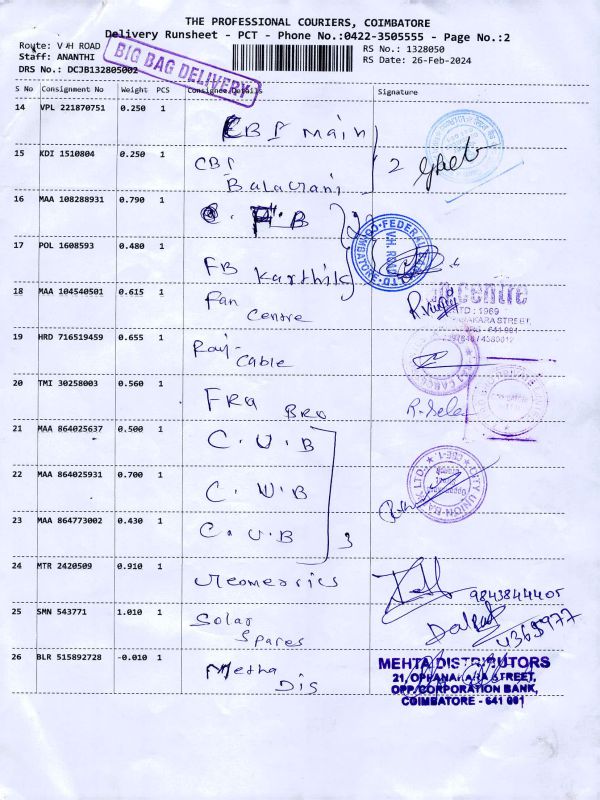 THE PROFESSIONAL COURIERS, COIMBATORE
Delivery Runsheet - PCT - Phone No.:0422-3505555 - Page No.:2
Route: V H ROAD
Staff: ANANTHI
DRS No.: DCJB132805002
BIG BAG DELIVERY
RS No.: 1328050
RS Date: 26-Feb-2024
S No Consignment No Weight PCS Consignee Details Signature
14 VPL 221870751 0.250 1 CBI Main
15 KDI 1510804 0.250 1 CBI
Balavani
2
16 MAA 108288931 0.790 1 C. F. B
17 POL 1608593 0.480 1 FB Karthik
FEDERAL BANK LTD
V.H. ROAD
COIMBATORE
18 MAA 104540501 0.615 1 Fan
Centre
centre
1969
STREET,
641 001
19 HRD 716519459 0.655 1 Raj
Cable
20 TMI 30258003 0.560 1 FRU Bro
21 MAA 864025637 0.500 1 C. U. B
22 MAA 864025931 0.700 1 C. U. B
23 MAA 864773002 0.430 1 C. U. B
3
CITY UNION BANK LTD.
CBE-1
24 MTR 2420509 0.910 1
9843844405
25 SMN 543771 1.010 1 Solar
Spares
4365977
26 BLR 515892728 -0.010 1 Metha
Dis
MEHTA DISTRIBUTORS
21, OPPANAKARA STREET,
OPP. CORPORATION BANK,
COIMBATORE - 641 001